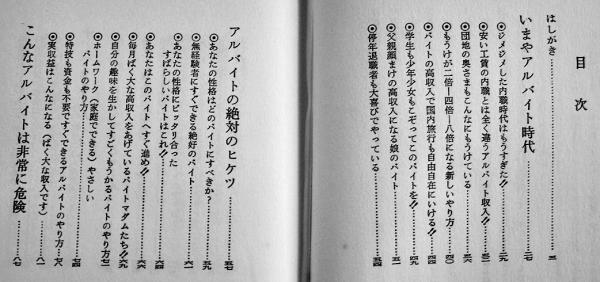 目次
はしがき……………三
いまやアルバイト時代……………二九
◎ジメジメした内職時代はもうすぎた!!……………二九
◎安い工賃の内職とは全く違うアルバイト収入!!……………三二
◎団地の奥さまもこんなにもうけている……………三六
◎もうけが二倍―四倍―八倍になる新しいやり方……………四〇
◎バイトの高収入で国内旅行も自由自在にいける!!……………四四
◎学生も少年少女もこぞってこのバイトを!!……………四九
◎父親顔まけの高収入になる娘のバイト……………五一
◎停年退職者も大喜びでやっている……………五四
アルバイトの絶対のヒケツ……………五七
◎あなたの性格はどのバイトにすべきか?……………五九
◎無経験者にすぐできる絶好のバイト……………六一
◎あなたの性格にピッタリ合った
すばらしいバイトはこれ!!……………六四
◎あなたはこのバイトへすぐ進め!!……………六六
◎毎月ばく大な高収入をあげているバイトマダムたち!!……六九
◎自分の趣味を生かしてすごくもうかるバイトのやり方…七二
◎ホームワーク(家庭でできる)やさしい
バイトのやり方……………七四
◎特技も資金も不要ですぐできるアルバイトのやり方……七八
◎実収益はこんなになる(ばく大な収入です)……………八一
こんなアルバイトは非常に危険……………八七